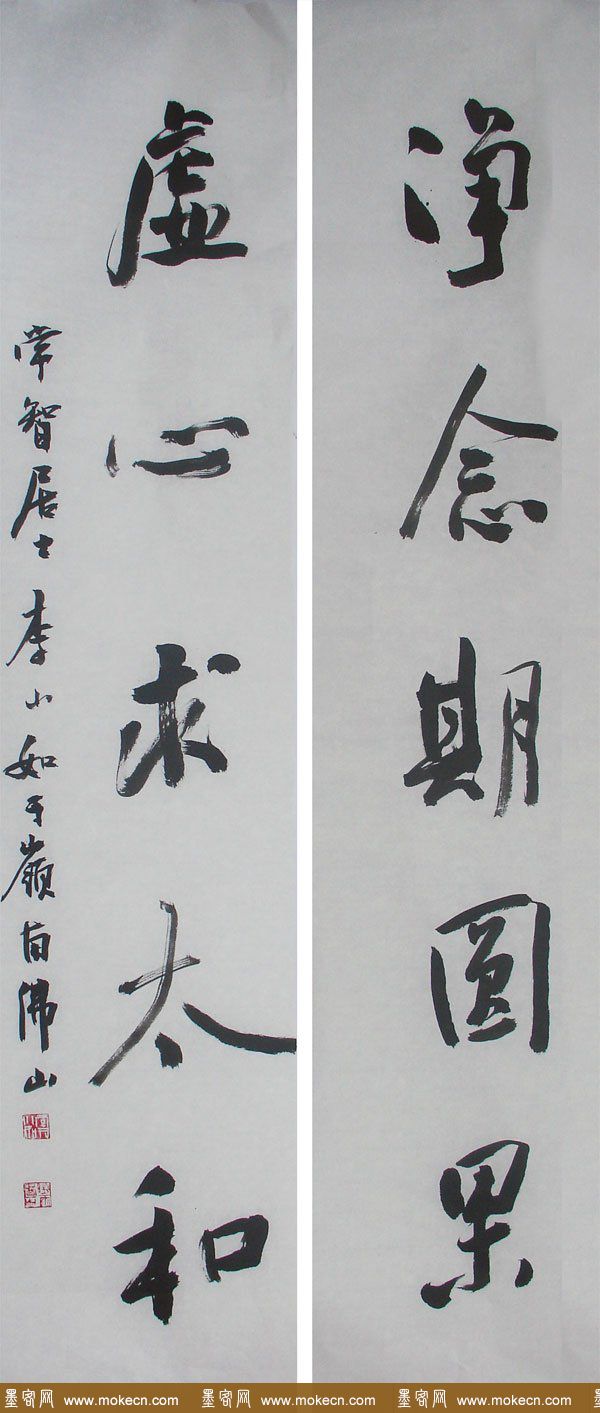 淨念期圓果
虛心求太和
常智居士李小如于嶺南佛山
墨客网 www.mokecn.com 墨客网 www.mokecn.com 墨客网 www.mokecn.com 墨